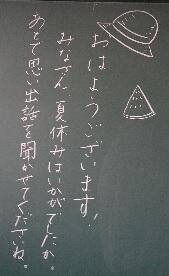 おはようございます!
みなさん、夏休みはいかがでしたか。
あとで思い出話を聞かせてくださいね。